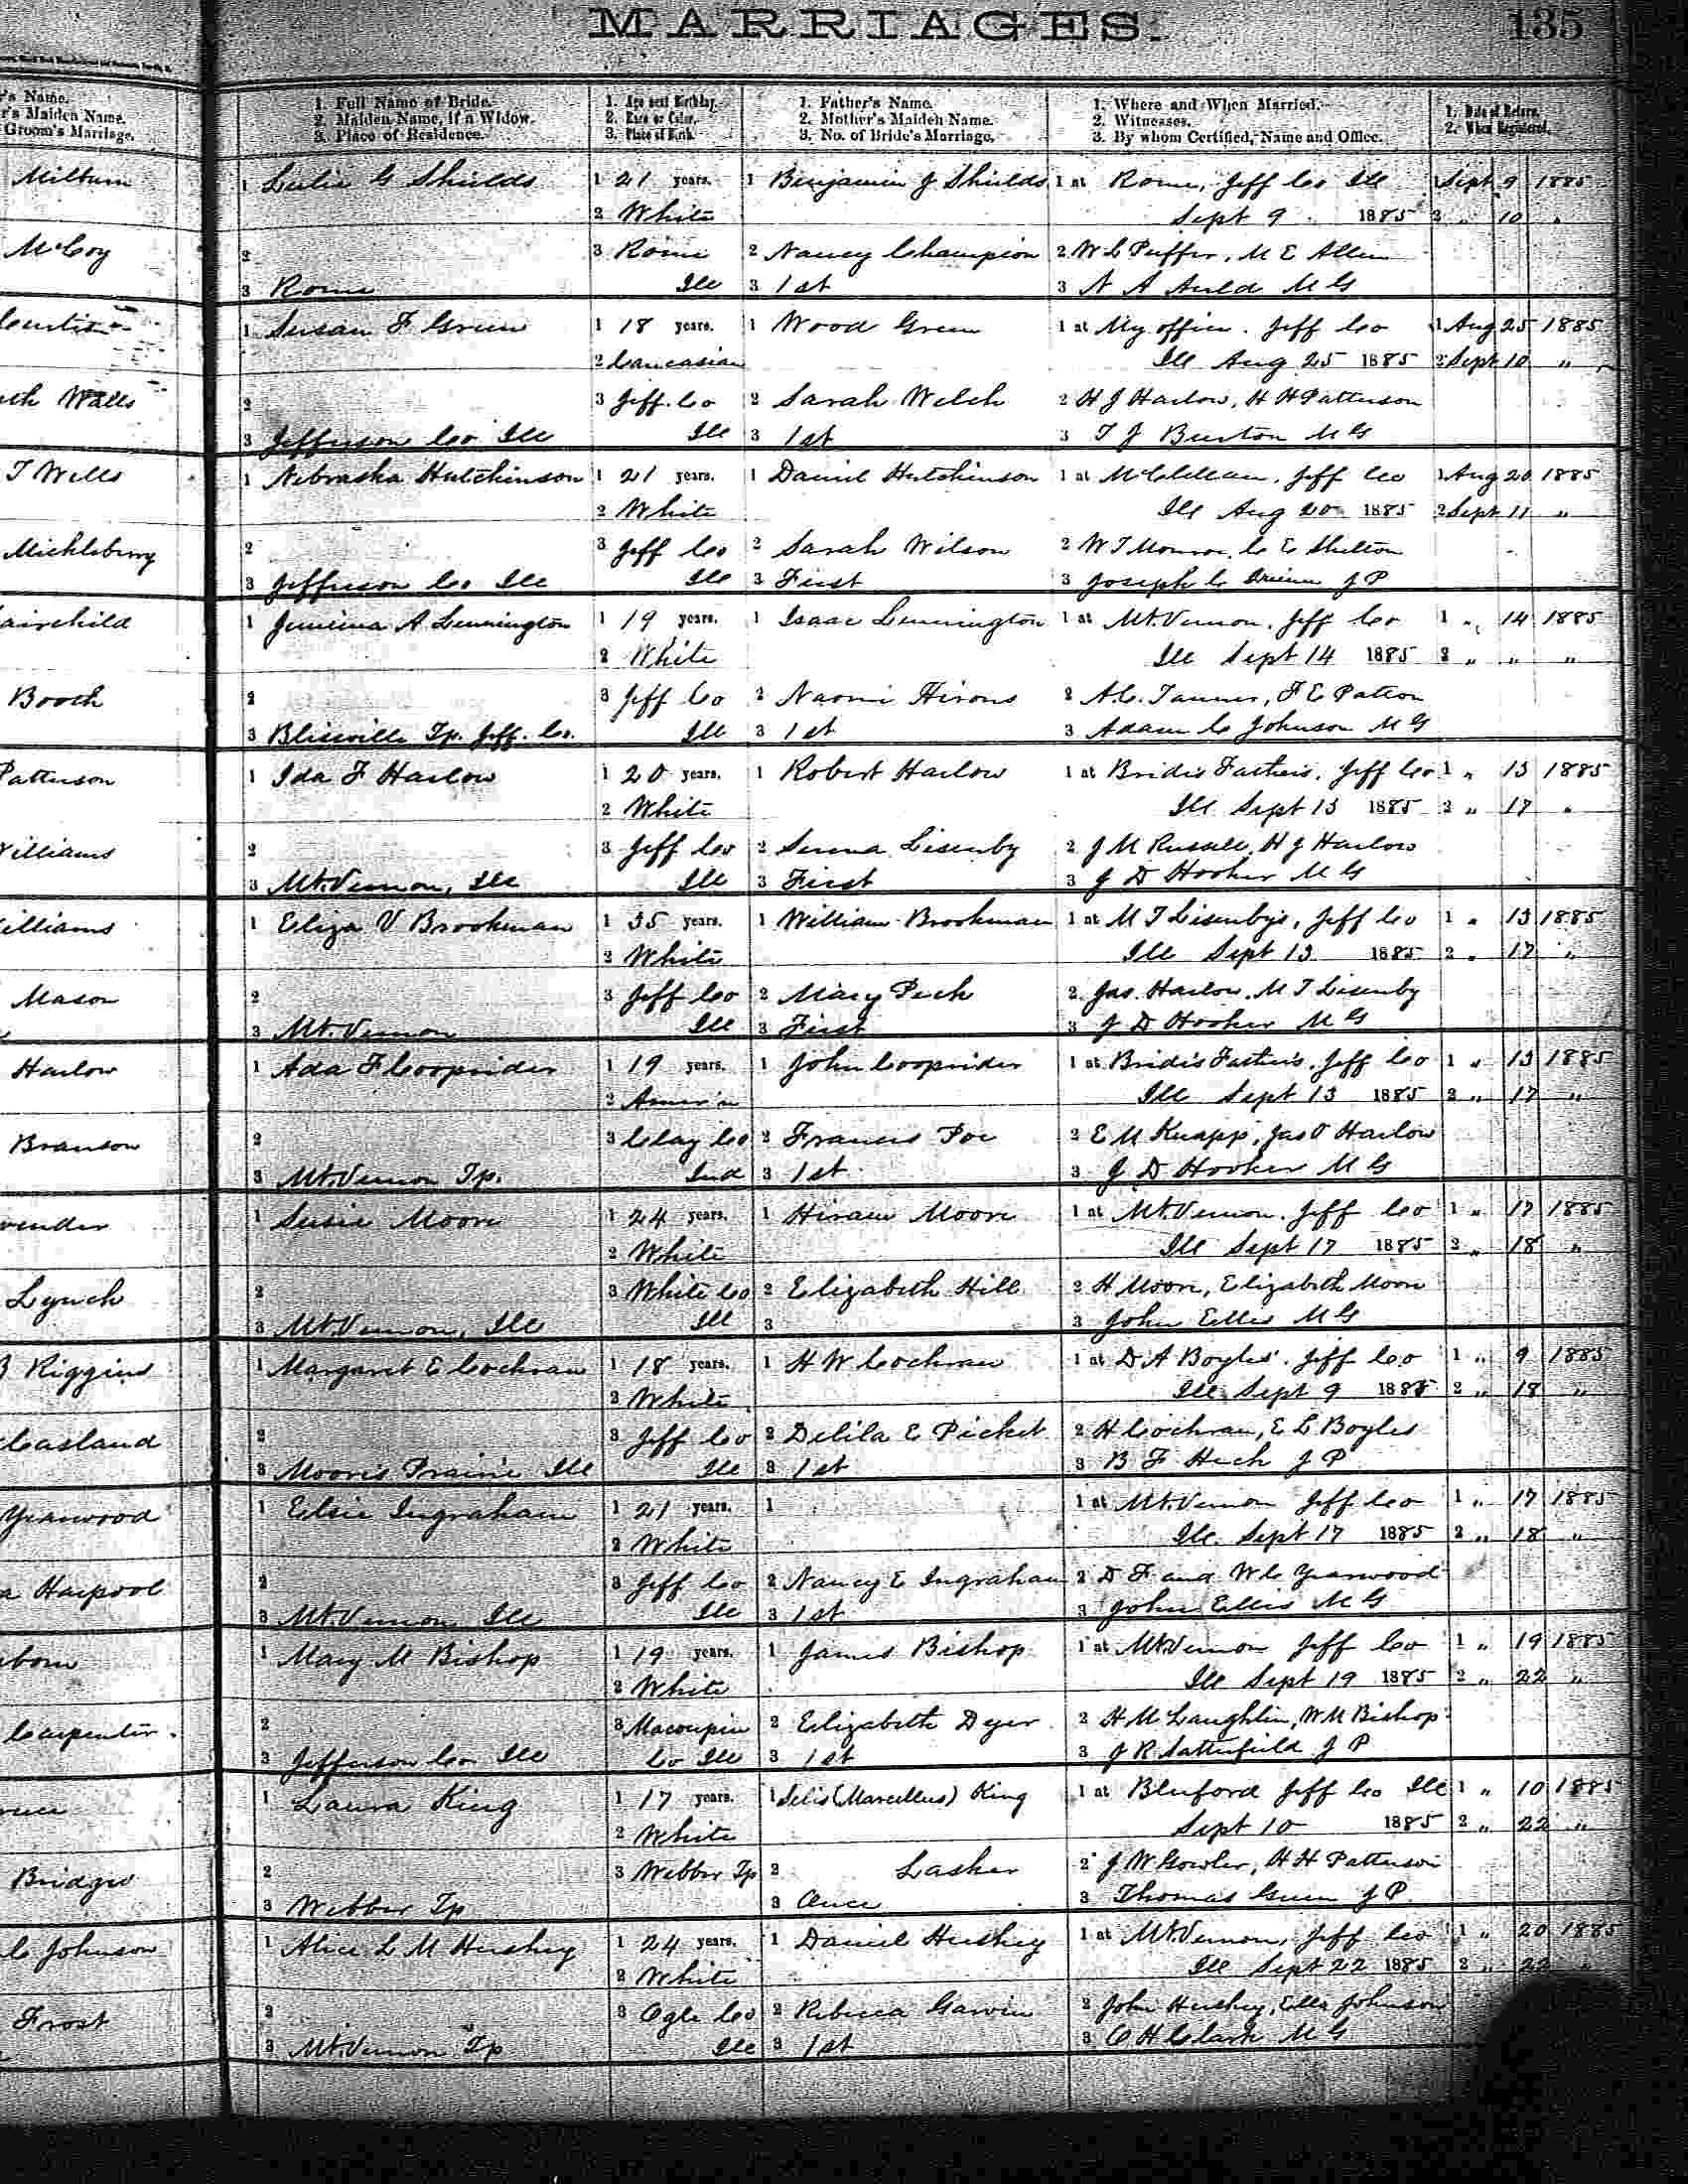 MARRIAGES.
135
's Name.
r's Maiden Name.
Groom's Marriage.
1. Full Name of Bride.
2. Maiden Name, if a Widow.
3. Place of Residence.
1. Age next Birthday.
2. Race or Color.
3. Place of Birth.
1. Father's Name.
2. Mother's Maiden Name.
3. No. of Bride's Marriage.
1. Where and When Married.
2. Witnesses.
3. By whom Certified, Name and Office.
1. Date of Return.
2. When Registered.
Milburn 1 Lulie G Shields 1 21 years. 1 Benjamin J Shields 1 at Rome, Jeff Co Ill 1 Sept 9 1885
2 White Sept 9 1885 2 " 10 "
McCoy 2 3 Rome 2 Nancy Champion 2 W L Puffer, M E Allen
3 Rome Ill 3 1st 3 N A Auld M G
1 Susan F Green 1 18 years. 1 Wood Green 1 at My office. Jeff Co 1 Aug 25 1885
2 Caucasian Ill Aug 25 1885 2 Sept 10 "
Walls 2 3 Jeff. Co 2 Sarah Welch 2 H J Harlow, H H Patterson
3 Jefferson Co Ill Ill 3 1st 3 T J Burton M G
T Wells 1 Nebraska Hutchinson 1 21 years. 1 Daniel Hutchinson 1 at McClellan, Jeff Co 1 Aug 20 1885
2 White Ill Aug 20 1885 2 Sept 11 "
Mickleberry 2 3 Jeff Co 2 Sarah Wilson 2 W T Monroe, C E Shelton
3 Jefferson Co Ill Ill 3 First 3 Joseph C J P
airchild 1 Jemima A Lennington 1 19 years. 1 Isaac Lennington 1 at Mt. Vernon, Jeff Co 1 " 14 1885
2 White Ill Sept 14 1885 2 " " "
Booth 2 3 Jeff Co 2 Naomi Hirons 2 A. C. Tanner, F E Patton
3 Blissville Tp. Jeff. Co. Ill 3 1st 3 Adam C Johnson M G
Patterson 1 Ida F Harlow 1 20 years. 1 Robert Harlow 1 at Bride's Father's, Jeff Co 1 " 13 1885
2 White Ill Sept 13 1885 2 " 17 "
illiams 2 3 Jeff Co 2 Serena Lisenby 2 J M Russell, H J Harlow
3 Mt. Vernon, Ill Ill 3 First 3 J D Hooker M G
illiams 1 Eliza V Brookman 1 35 years. 1 William Brookman 1 at M T Lisenby's, Jeff Co 1 " 13 1885
2 White Ill Sept 13 1885 2 " 17 "
Mason 2 3 Jeff Co 2 Mary Peck 2 Jas. Harlow, M T Lisenby
3 Mt. Vernon Ill 3 First 3 J D Hooker M G
Harlow 1 Ada F Cooprider 1 19 years. 1 John Cooprider 1 at Bride's Father's, Jeff Co 1 " 13 1885
2 Amer'n Ill Sept 13 1885 2 " 17 "
Branson 2 3 Clay Co 2 Frances Poe 2 E M Knapp, Jas O Harlow
3 Mt. Vernon Tp. Ind 3 1st 3 J D Hooker M G
vender 1 Susie Moore 1 24 years. 1 Hiram Moore 1 at Mt. Vernon, Jeff Co 1 " 17 1885
2 White Ill Sept 17 1885 2 " 18 "
Lynch 2 3 White Co 2 Elizabeth Hill 2 H Moore, Elizabeth Moore
3 Mt. Vernon, Ill Ill 3 3 John Ellis M G
Riggins 1 Margaret E Cochran 1 18 years. 1 H W Cochran 1 at D A Boyles'. Jeff Co 1 " 9 1885
2 White Ill Sept 9 1885 2 " 18 "
Casland 2 3 Jeff Co 2 Delila E Picket 2 H Cochran, E L Boyles
3 Moore's Prairie Ill Ill 3 1st 3 B F Heck J P
Yearwood 1 Elsie Ingraham 1 21 years. 1 1 at Mt. Vernon Jeff Co 1 " 17 1885
2 White Ill. Sept 17 1885 2 " 18 "
a Harpool 2 3 Jeff Co 2 Nancy E Ingraham 2 D F and W C Yearwood
3 Mt. Vernon Ill Ill 3 1st 3 John Ellis M G
born 1 Mary M Bishop 1 19 years. 1 James Bishop 1 at Mt. Vernon Jeff Co 1 " 19 1885
2 White Ill Sept 19 1885 2 " 22 "
Carpenter. 2 3 Macoupin 2 Elizabeth Dyer 2 H McLaughlin, W M Bishop
3 Jefferson Co Ill Co Ill 3 1st 3 J R Satterfield J P
1 Laura King 1 17 years. 1 (Marcellus) King 1 at Bluford Jeff Co Ill 1 " 10 1885
2 White Sept 10 1885 2 " 22 "
Bridges 2 3 Webber Tp 2 Lasher 2 J W Gowler, H H Patterson
3 Webber Tp 3 Once 3 Thomas Green J P
C Johnson 1 Alice L M Hershey 1 24 years. 1 Daniel Hershey 1 at Mt. Vernon, Jeff Co 1 " 20 1885
2 White Ill Sept 22 1885 2 " 22
Frost 2 3 Ogle Co 2 Rebecca Garvin 2 John Hershey, Ella Johnson
3 Mt. Vernon Tp Ill 3 1st 3 C H Clark M G